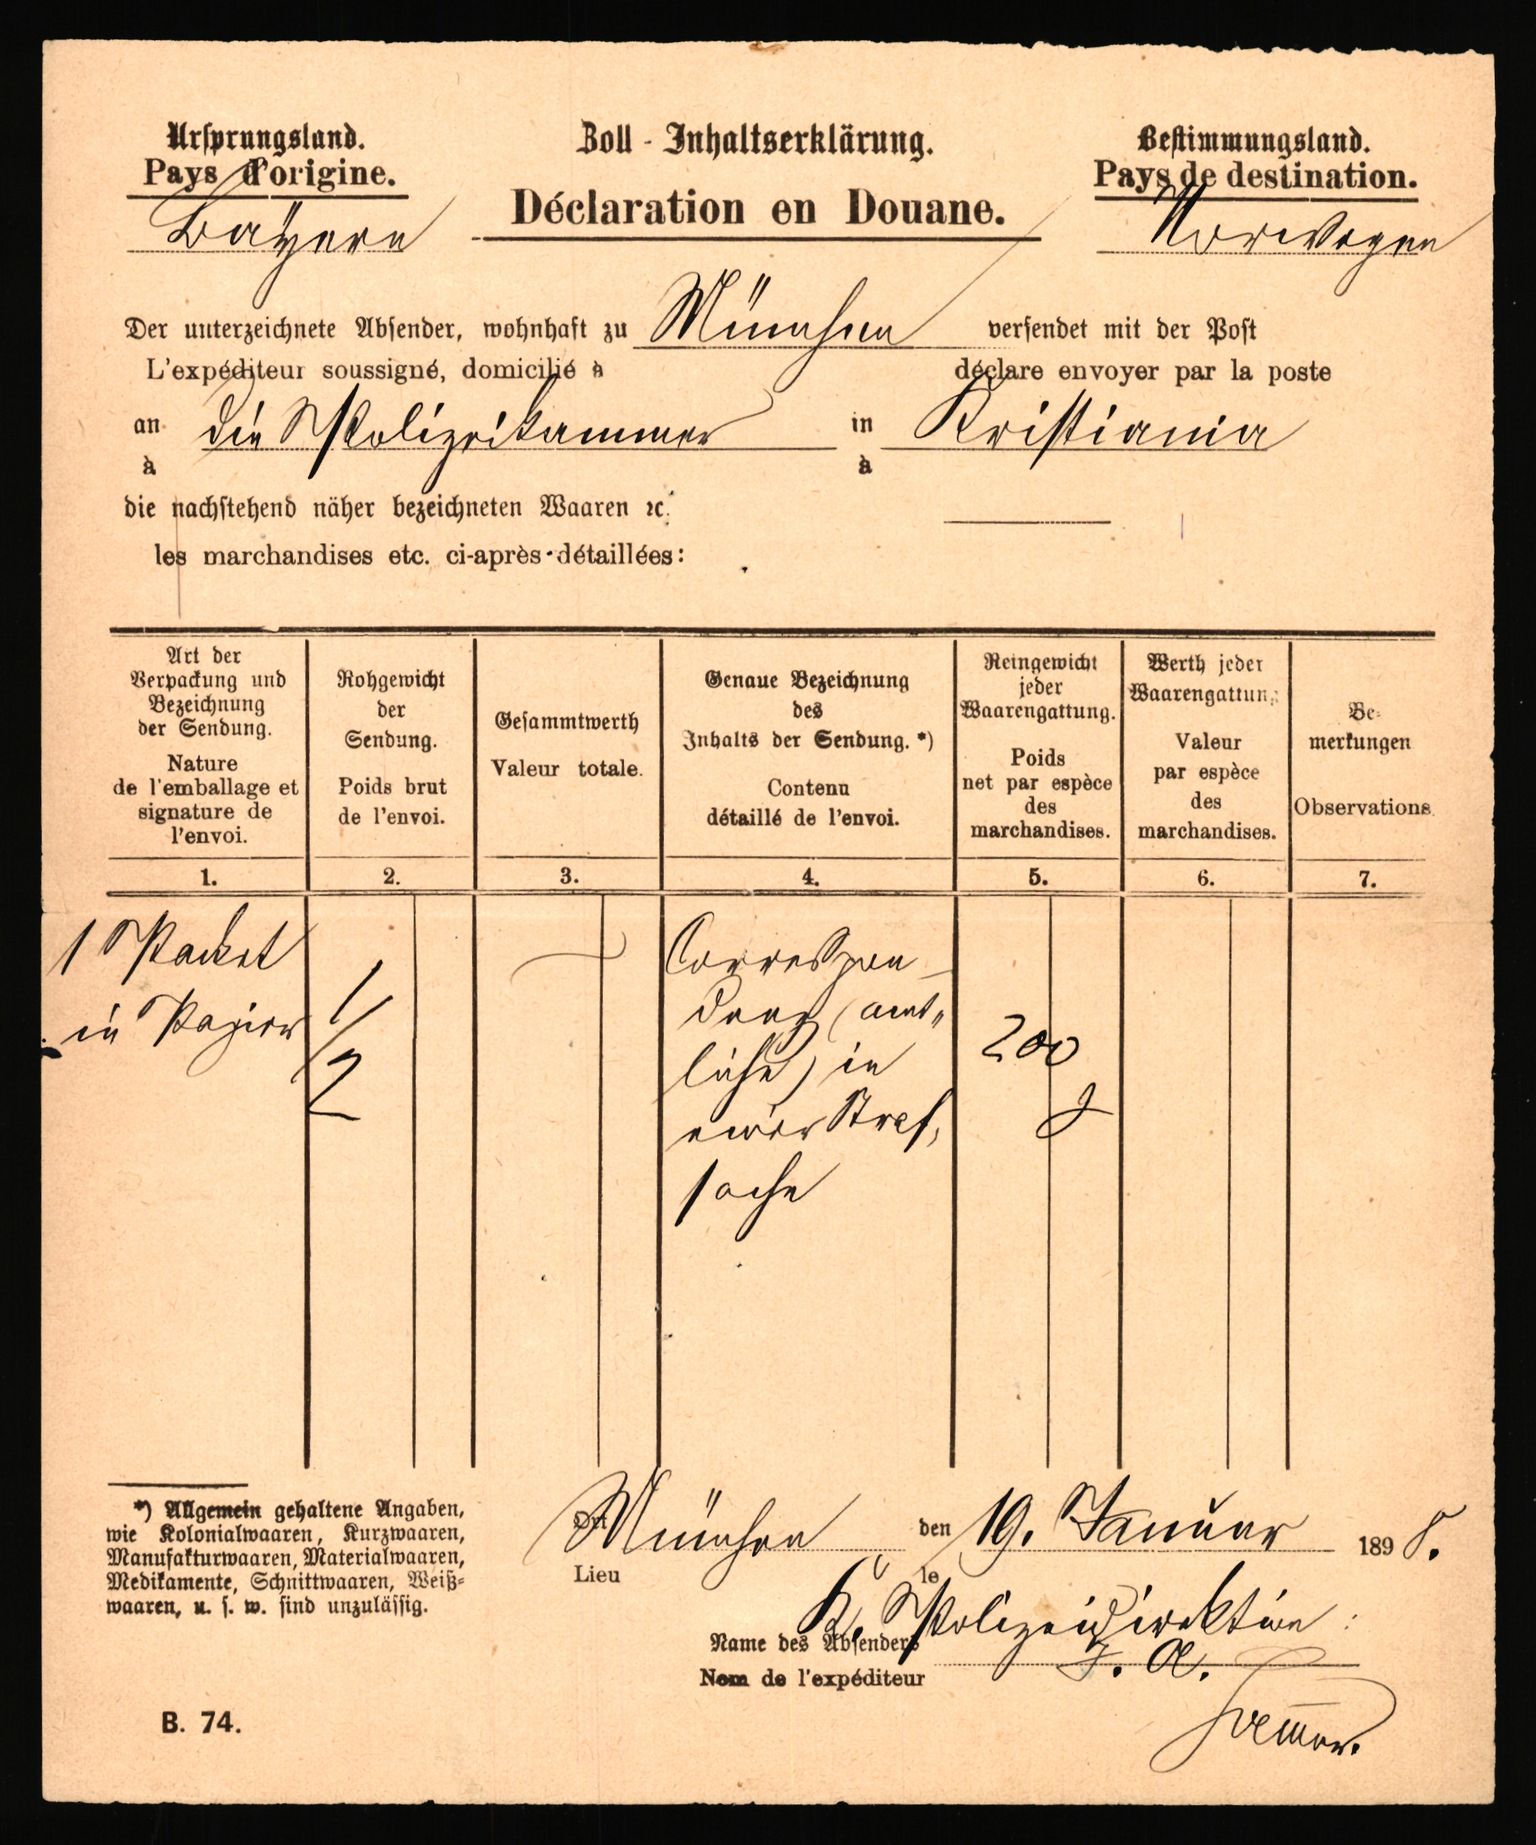 Ursprungsland.
Pays d'origine.
Bayern
Zoll - Inhaltserklärung.
Déclaration en Douane.
Bestimmungsland.
Pays de destination.
Norwegen
Der unterzeichnete Absender, wohnhaft zu München versendet mit der Post
L'expéditeur soussigné, domicilié à déclare envoyer par la poste
an die Polizeikammer in Kristiania
à à
die nachstehend näher bezeichneten Waaren ꝛc.
les marchandises etc. ci-après détaillées:
Art der
Verpackung und
Bezeichnung
der Sendung.
Nature
de l'emballage et
signature de
l'envoi.
1.
Rohgewicht
der
Sendung.
Poids brut
de l'envoi.
2.
Gesammtwerth
Valeur totale.
3.
Genaue Bezeichnung
des
Inhalts der Sendung. *)
Contenu
détaillé de l'envoi.
4.
Reingewicht
jeder
Waarengattung.
Poids
net par espèce
des
marchandises.
5.
Werth jeder
Waarengattung
Valeur
par espèce
des
marchandises.
6.
Be-
merkungen
Observations.
7.
1 Packet
in Papier
1/2
Correspon-
denz (amt-
liche) in
einer Straf-
sache
200
g
*) Allgemein gehaltene Angaben,
wie Kolonialwaaren, Kurzwaaren,
Manufakturwaaren, Materialwaaren,
Medikamente, Schnittwaaren, Weiß-
waaren, u. s. w. sind unzulässig.
Ort München den 19. Januar 1898.
Lieu le
K. Polizeidirektion:
Name des Absenders
Nom de l'expéditeur
I. A.
B. 74.